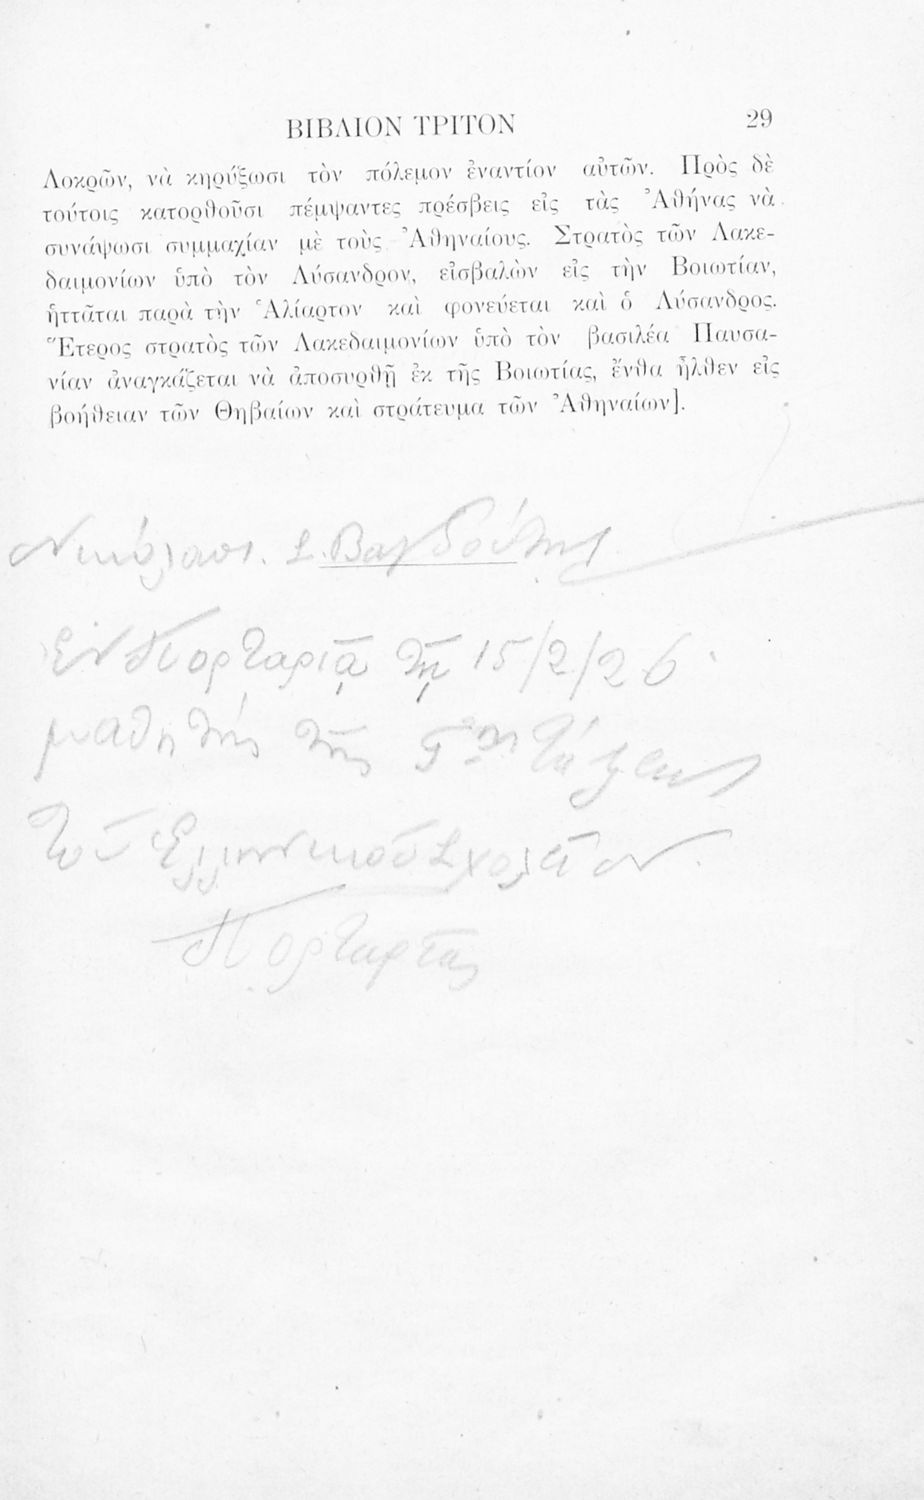 ΒΙΒΛΙΟΝ ΤΡΙΤΟΝ 29
Λοκρῶν, νὰ κηρύξωσι τὸν πόλεμον ἐναντίον αὐτῶν. Πρὸς δὲ
τούτοις κατορθοῦσι πέμψαντες πρέσβεις εἰς τὰς Ἀθήνας νὰ
συνάψωσι συμμαχίαν μὲ τοὺς Ἀθηναίους. Στρατὸς τῶν Λακε-
δαιμονίων ὑπὸ τὸν Λύσανδρον, εἰσβαλὼν εἰς τὴν Βοιωτίαν,
ἡττᾶται παρὰ τὴν Ἁλίαρτον καὶ φονεύεται καὶ ὁ Λύσανδρος.
Ἕτερος στρατὸς τῶν Λακεδαιμονίων ὑπὸ τὸν βασιλέα Παυσα-
νίαν ἀναγκάζεται νὰ ἀποσυρθῇ ἐκ τῆς Βοιωτίας, ἔνθα ἦλθεν εἰς
βοήθειαν τῶν Θηβαίων καὶ στράτευμα τῶν Ἀθηναίων].
Νικόλαος. Σ. Βαγδούτης
Ἐν Πορταριᾷ τῇ 15/2/26
μαθητής τῆς Γης τάξεως
τοῦ Ἑλληνικοῦ Σχολείου
Πορταριᾶς